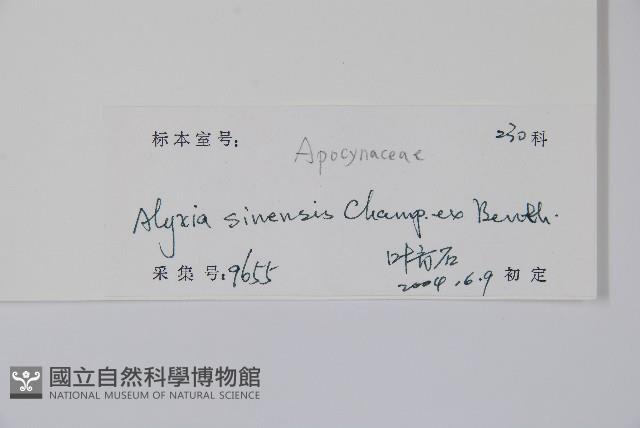 标本室号: 230科
Apocynaceae
Alyxia sinensis Champ. ex Benth.
采集号: 9655 叶育石
2004.6.9 初定
國立自然科學博物館
NATIONAL MUSEUM OF NATURAL SCIENCE